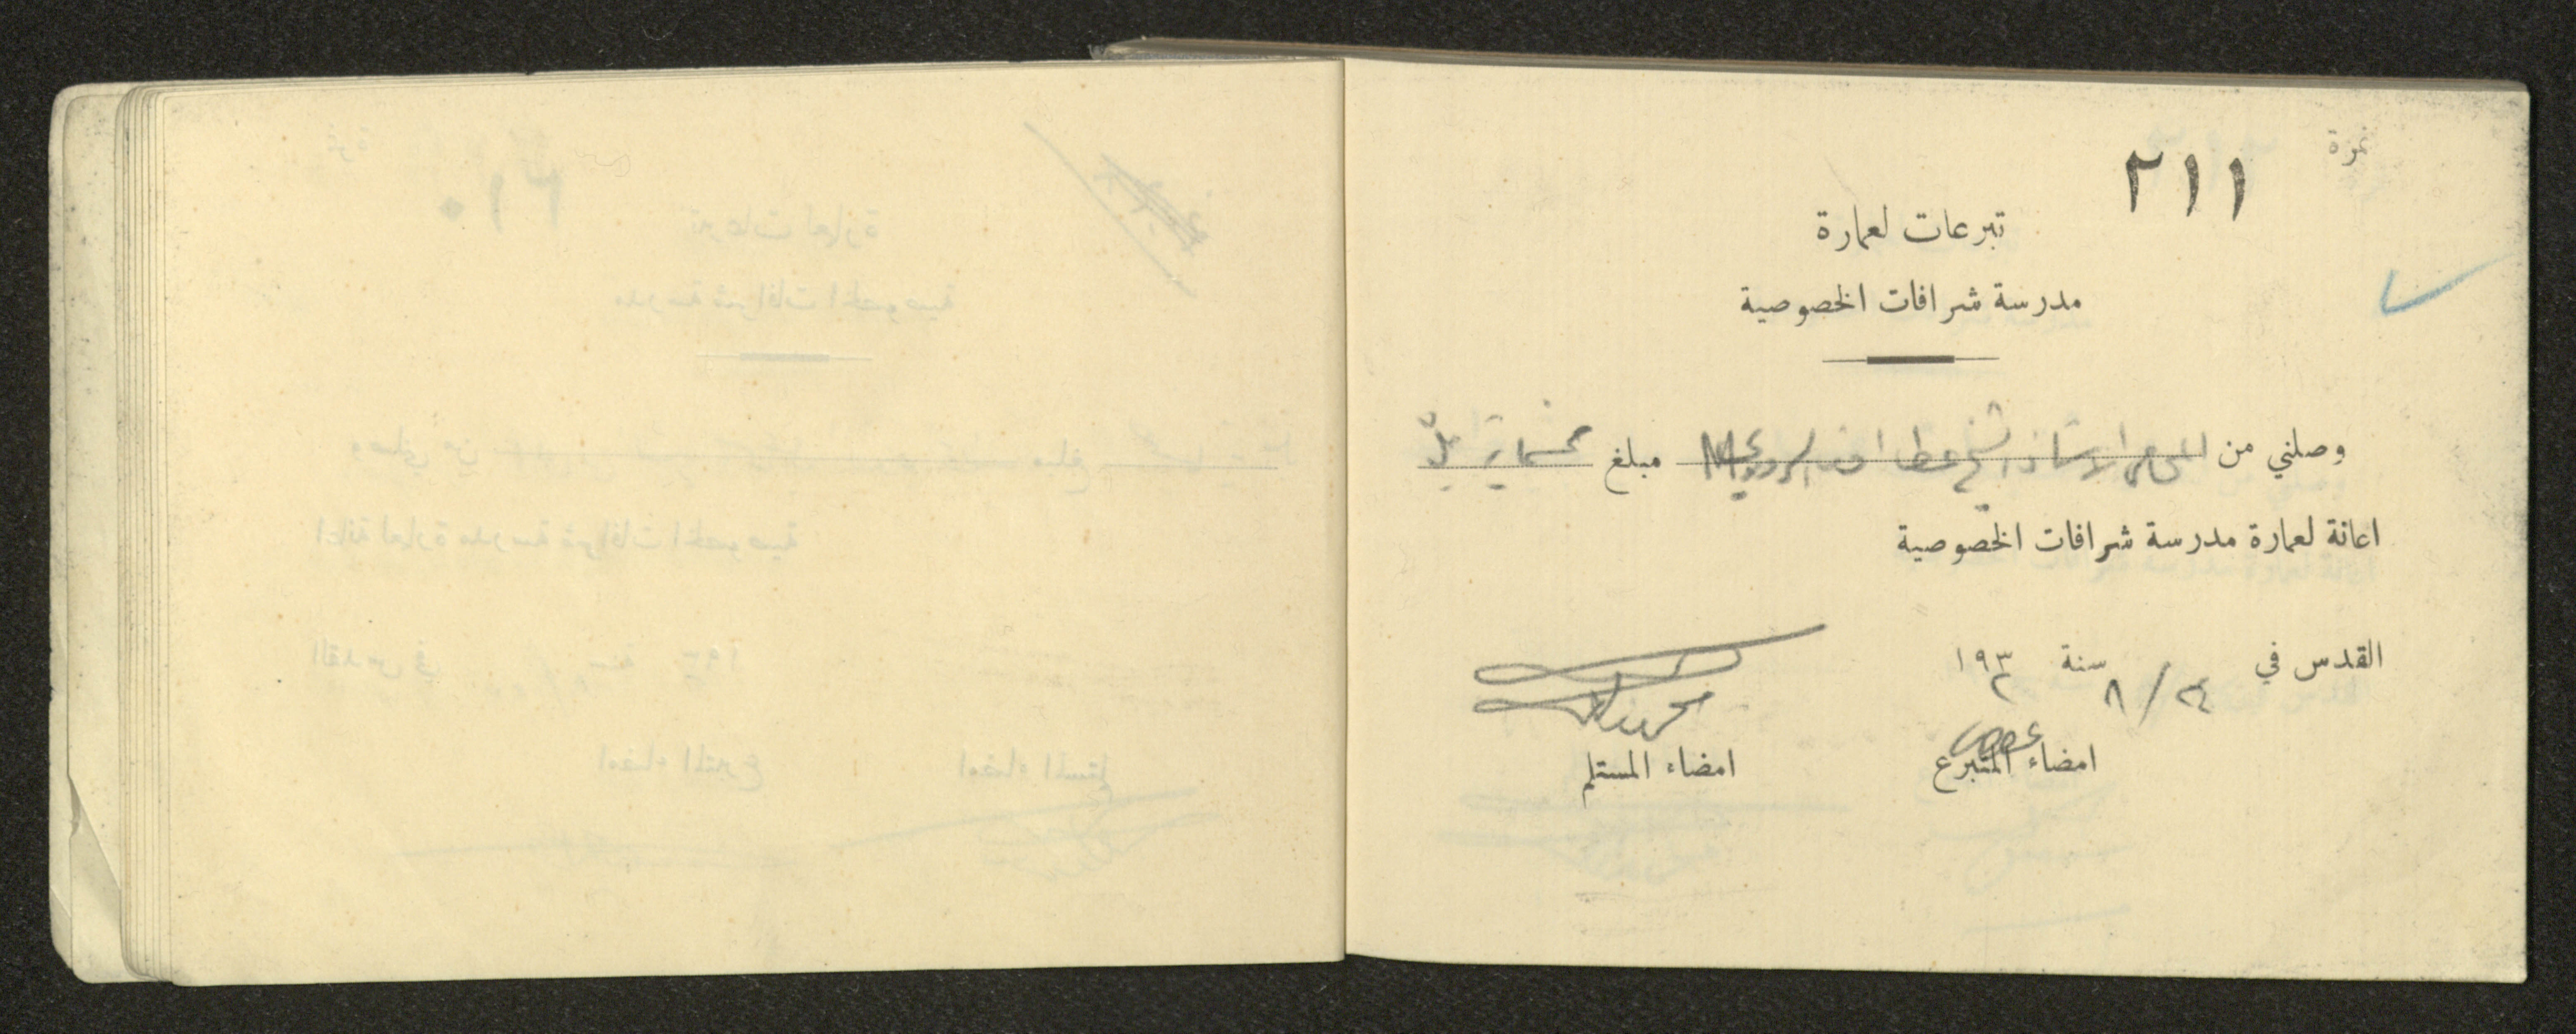 نمرة
٢١١
تبرعات لعمارة
مدرسة شرافات الخصوصية
وصلني من الاستاذ الشيخ عطا مبلغ خمسماية ملّ
اعانة لعمارة مدرسة شرافات الخصوصية
القدس في ٢٤ / ٨ سنة ١٩٣٢
امضاء المتبرع امضاء المستلم